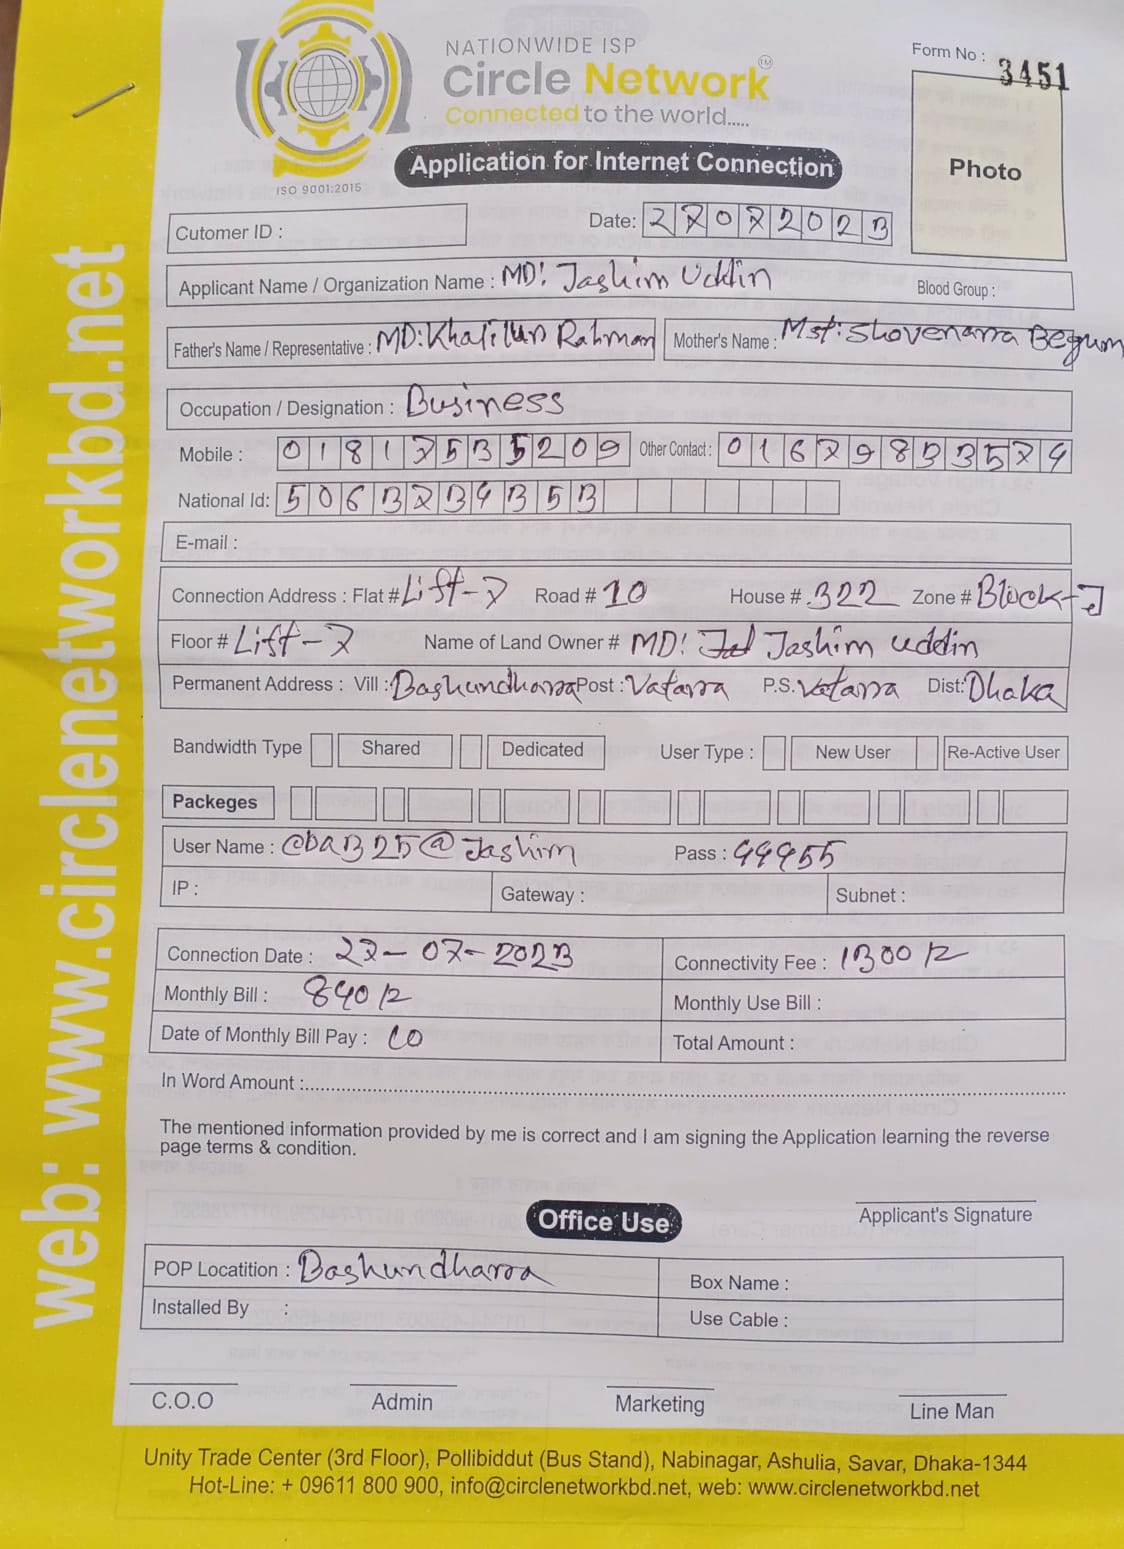 NATIONWIDE ISP
Circle Network™
Connected to the world.....
ISO 9001:2015
Form No : 3451
Photo
Application for Internet Connection
Cutomer ID :
Date: 27072023
Applicant Name / Organization Name : MD: Jashim Uddin Blood Group :
Father's Name / Representative : MD: Khalilur Rahman Mother's Name : Mst: Shovenara Begum
Occupation / Designation : Business
Mobile : 01817535209 Other Contact : 01679833574
National Id: 5063734353
E-mail :
Connection Address : Flat # Lift-7 Road # 10 House # 322 Zone # Block-J
Floor # Lift-7 Name of Land Owner # MD: Jashim uddin
Permanent Address : Vill : Bashundhara Post : Vatara P.S. Vatara Dist: Dhaka
Bandwidth Type Shared Dedicated User Type : New User Re-Active User
Packeges
User Name : @ba325@Jashim Pass : 44455
IP : Gateway : Subnet :
Connection Date : 27-07-2023 Connectivity Fee : 1300/2
Monthly Bill : 840/2 Monthly Use Bill :
Date of Monthly Bill Pay : 10 Total Amount :
In Word Amount :
The mentioned information provided by me is correct and I am signing the Application learning the reverse
page terms & condition.
Applicant's Signature
Office Use
POP Locatition : Bashundhara Box Name :
Installed By : Use Cable :
C.O.O Admin Marketing Line Man
Unity Trade Center (3rd Floor), Pollibiddut (Bus Stand), Nabinagar, Ashulia, Savar, Dhaka-1344
Hot-Line: + 09611 800 900, info@circlenetworkbd.net, web: www.circlenetworkbd.net
web: www.circlenetworkbd.net